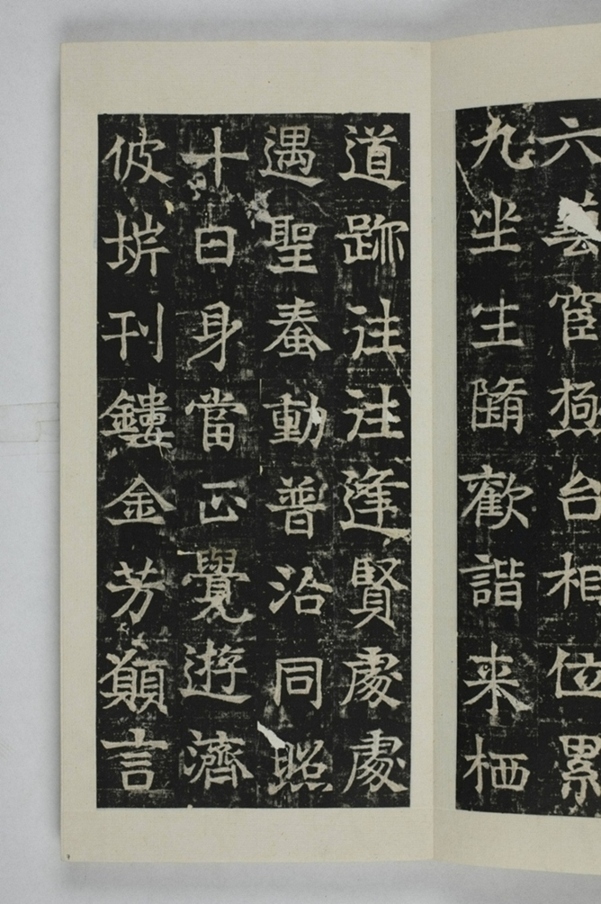 六藝宦極台相位累
九坐生隨歡諧来栖
道跡往往逢賢處處
遇聖蠢動普沾同照
十日身當正覺遊濟
彼垪刊鏤金芳願言